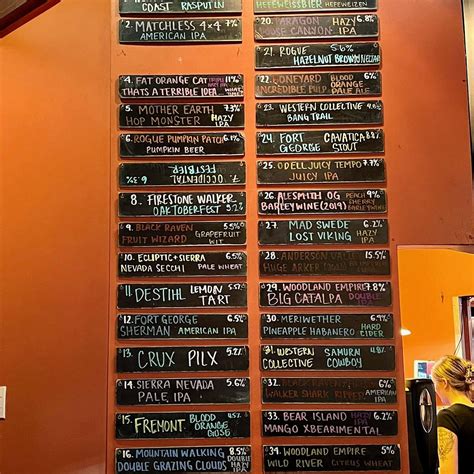 COAST RASPUTIN
2. MATCHLESS 4x4 7.2%
AMERICAN IPA
4. FAT ORANGE CAT 11%
THATS A TERRIBLE IDEA
5. MOTHER EARTH 7.3%
HOP MONSTER HAZY IPA
6. ROGUE PUMPKIN PATCH 6.1%
PUMPKIN BEER
7. OCCIDENTAL 6.3%
FESTBIER
8. FIRESTONE WALKER
OAKTOBERFEST 5.2%
9. BLACK RAVEN 6.5%
FRUIT WIZARD GRAPEFRUIT KVEIT
10. ECLIPTIC + SIERRA 6.5%
NEVADA SECCHI PALE WHEAT
11. DESTIHL LEMON TART
12. FORT GEORGE 6.5%
SHERMAN AMERICAN IPA
13. CRUX PILX 5.2%
14. SIERRA NEVADA 5.6%
PALE IPA
15. FREMONT BLOOD ORANGE GOSE 4.5%
16. MOUNTAIN WALKING 8.5%
DOUBLE GRAZING CLOUDS DOUBLE HAZY
HEFEWEISSBIER HEFEWEIZEN
20. PARAGON HAZY 6.8%
CANYON IPA
21. ROGUE 5.6%
HAZELNUT BROWN NECTAR
22. BLOOD ORANGE 6%
INCREDIBLE PULP PALE ALE
23. WESTERN COLLECTIVE
BANG TRAIL
24. FORT CAVATICA 8.8%
GEORGE STOUT
25. ODELL JUICY TEMPO 7.7%
JUICY IPA
26. ALESMITH OG PEACH 9%
BARLEYWINE (2019) SHERRY BARLEYWINE
27. MAD SWEDE 6.2%
LOST VIKING HAZY IPA
28. ANDERSON VALLEY 15.5%
HUGE ARKER
29. WOODLAND EMPIRE 7.8%
BIG CATALPA DOUBLE IPA
30. MERIWETHER 6.9%
PINEAPPLE HABANERO HARD CIDER
31. WESTERN SAMURAI 4.8%
COLLECTIVE COWBOY
32. BLACK RAVEN 6.5%
WALKER SHARK RIPPER AMERICAN IPA
33. BEAR ISLAND HAZY 6.2%
MANGO XBEARIMENTAL
34. WOODLAND EMPIRE 5%
WILD RIVER